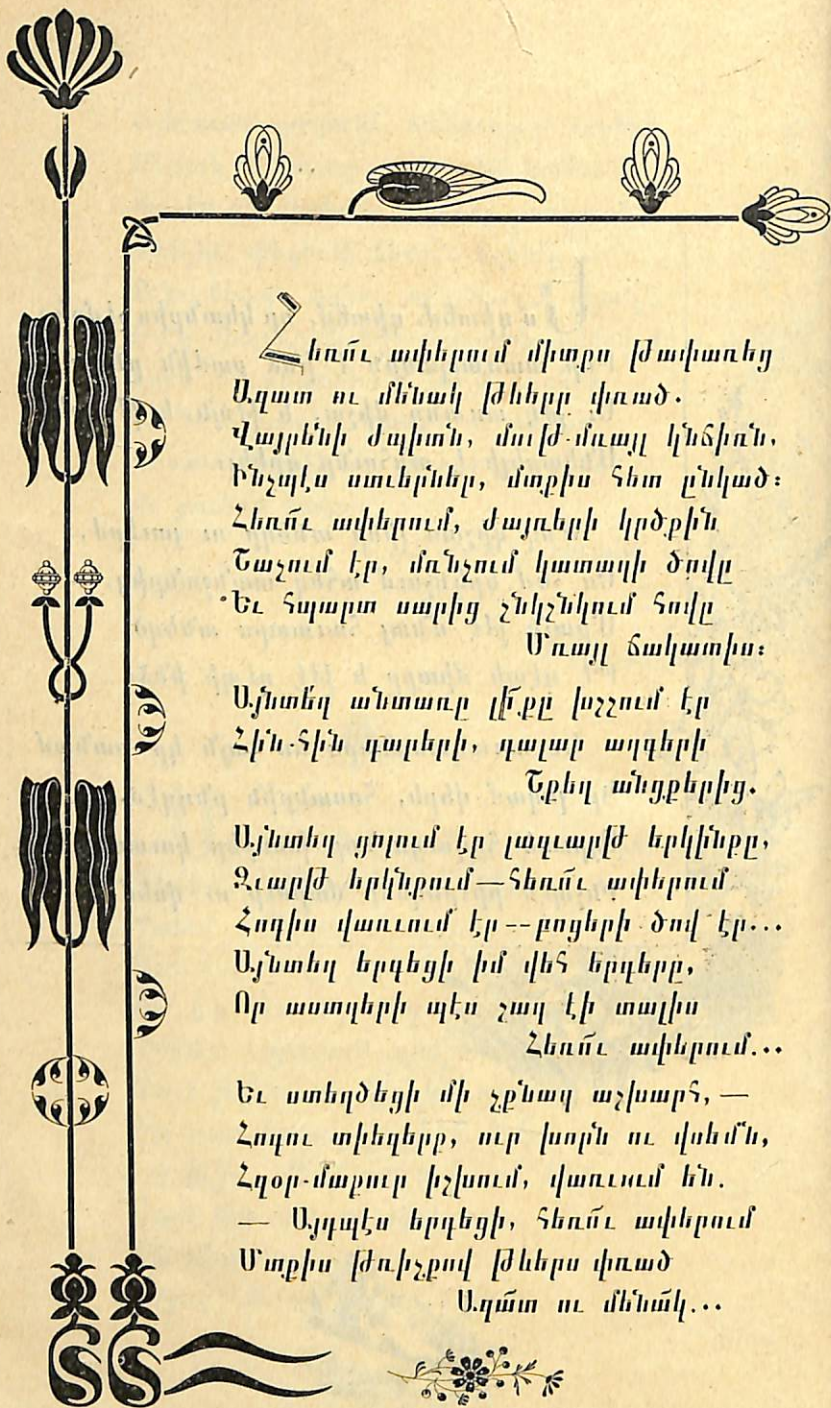 Հեռո՜ւ ափերում միտքս թափառեց
Ազատ ու մենակ թևերը փռած.
Վայրենի ժպիտն, մութ-մռայլ կնճիռն,
Ինչպէս ստւերներ, մտքիս հետ ընկած:
Հեռո՜ւ ափերում, ժայռերի կրծքին
Շաչում էր, մռնչում կատաղի ծովը
Եւ հպարտ սարից չնկչնկում հովը
Մռայլ ճակատիս:
Այնտե՜ղ անտառը լի՜քը խշշում էր
Հին-հին դարերի, դալար աղգերի
Շքեղ անցքերից.
Այնտեղ ցոլում էր լազւարթ երկինքը,
Զւարթ երկնքում—հեռո՜ւ ափերում
Հոգիս վառւում էր--բոցերի ծով էր...
Այնտեղ երգեցի իմ վեհ երգերը,
Որ աստղերի պէս շաղ էի տալիս
Հեռո՜ւ ափերում...
Եւ ստեղծեցի մի չքնաղ աշխարհ, —
Հոգու տիեզերք, ուր խորն ու վսեմ՜ն,
Հզօր-մաքուր իշխում, վառւում են.
— Այդպէս երգեցի, հեռո՜ւ ափերում
Մտքիս թռիչքով թևերս փռած
Ազա՜տ ու մենա՜կ...